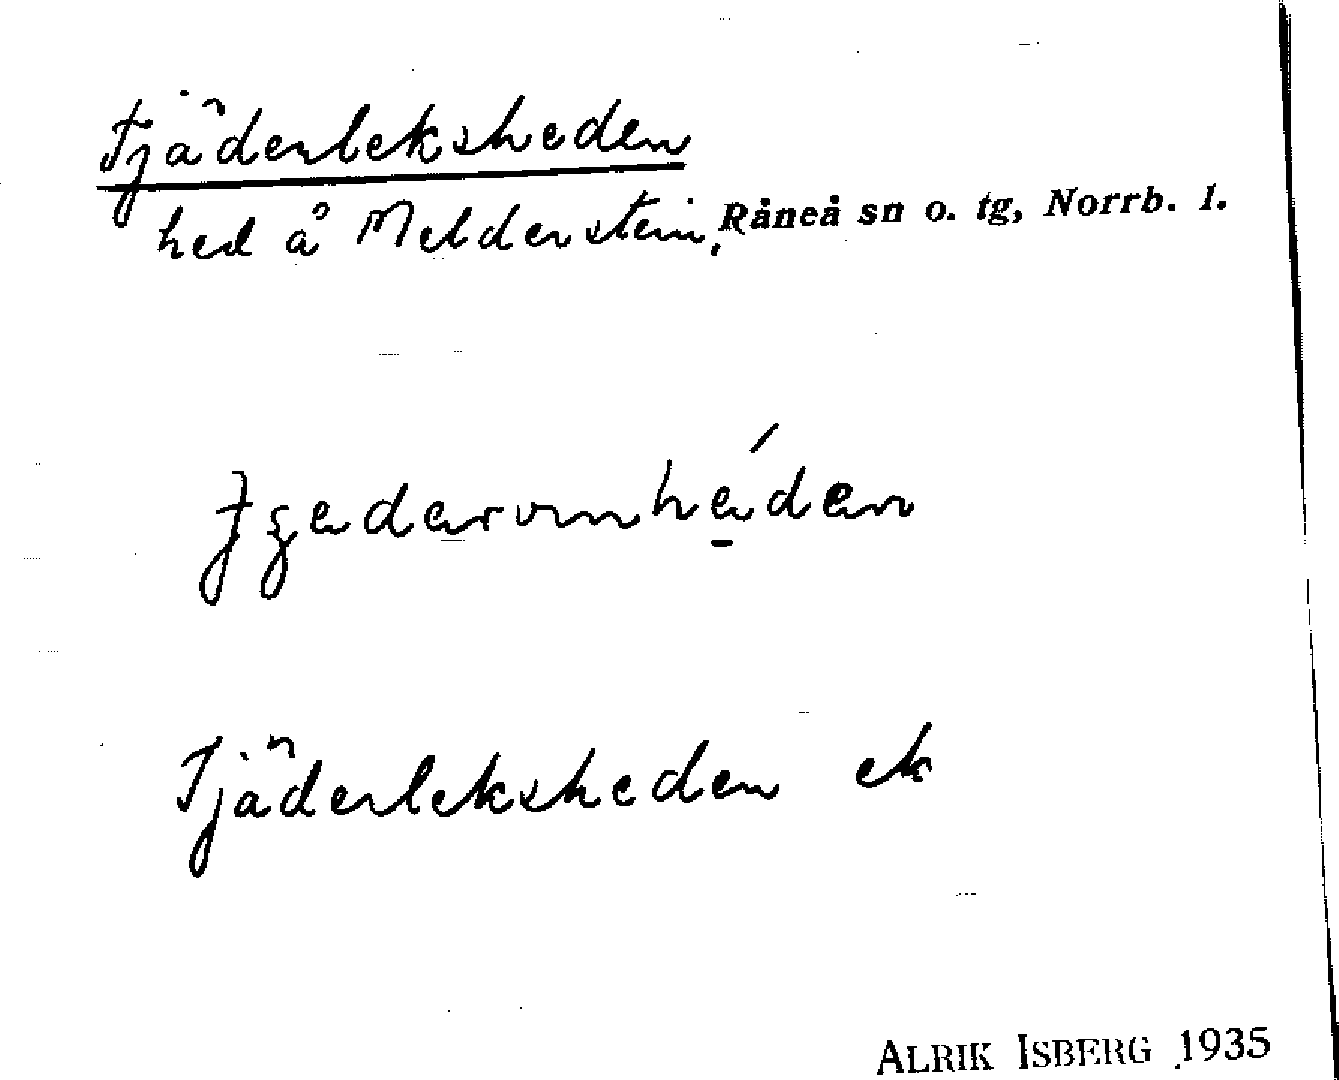 Tjäderleksheden
hed å Melderstein, Råneå sn o. tg, Norrb. l.
Tjäderleksheden ek
ALRIK ISBERG 1935